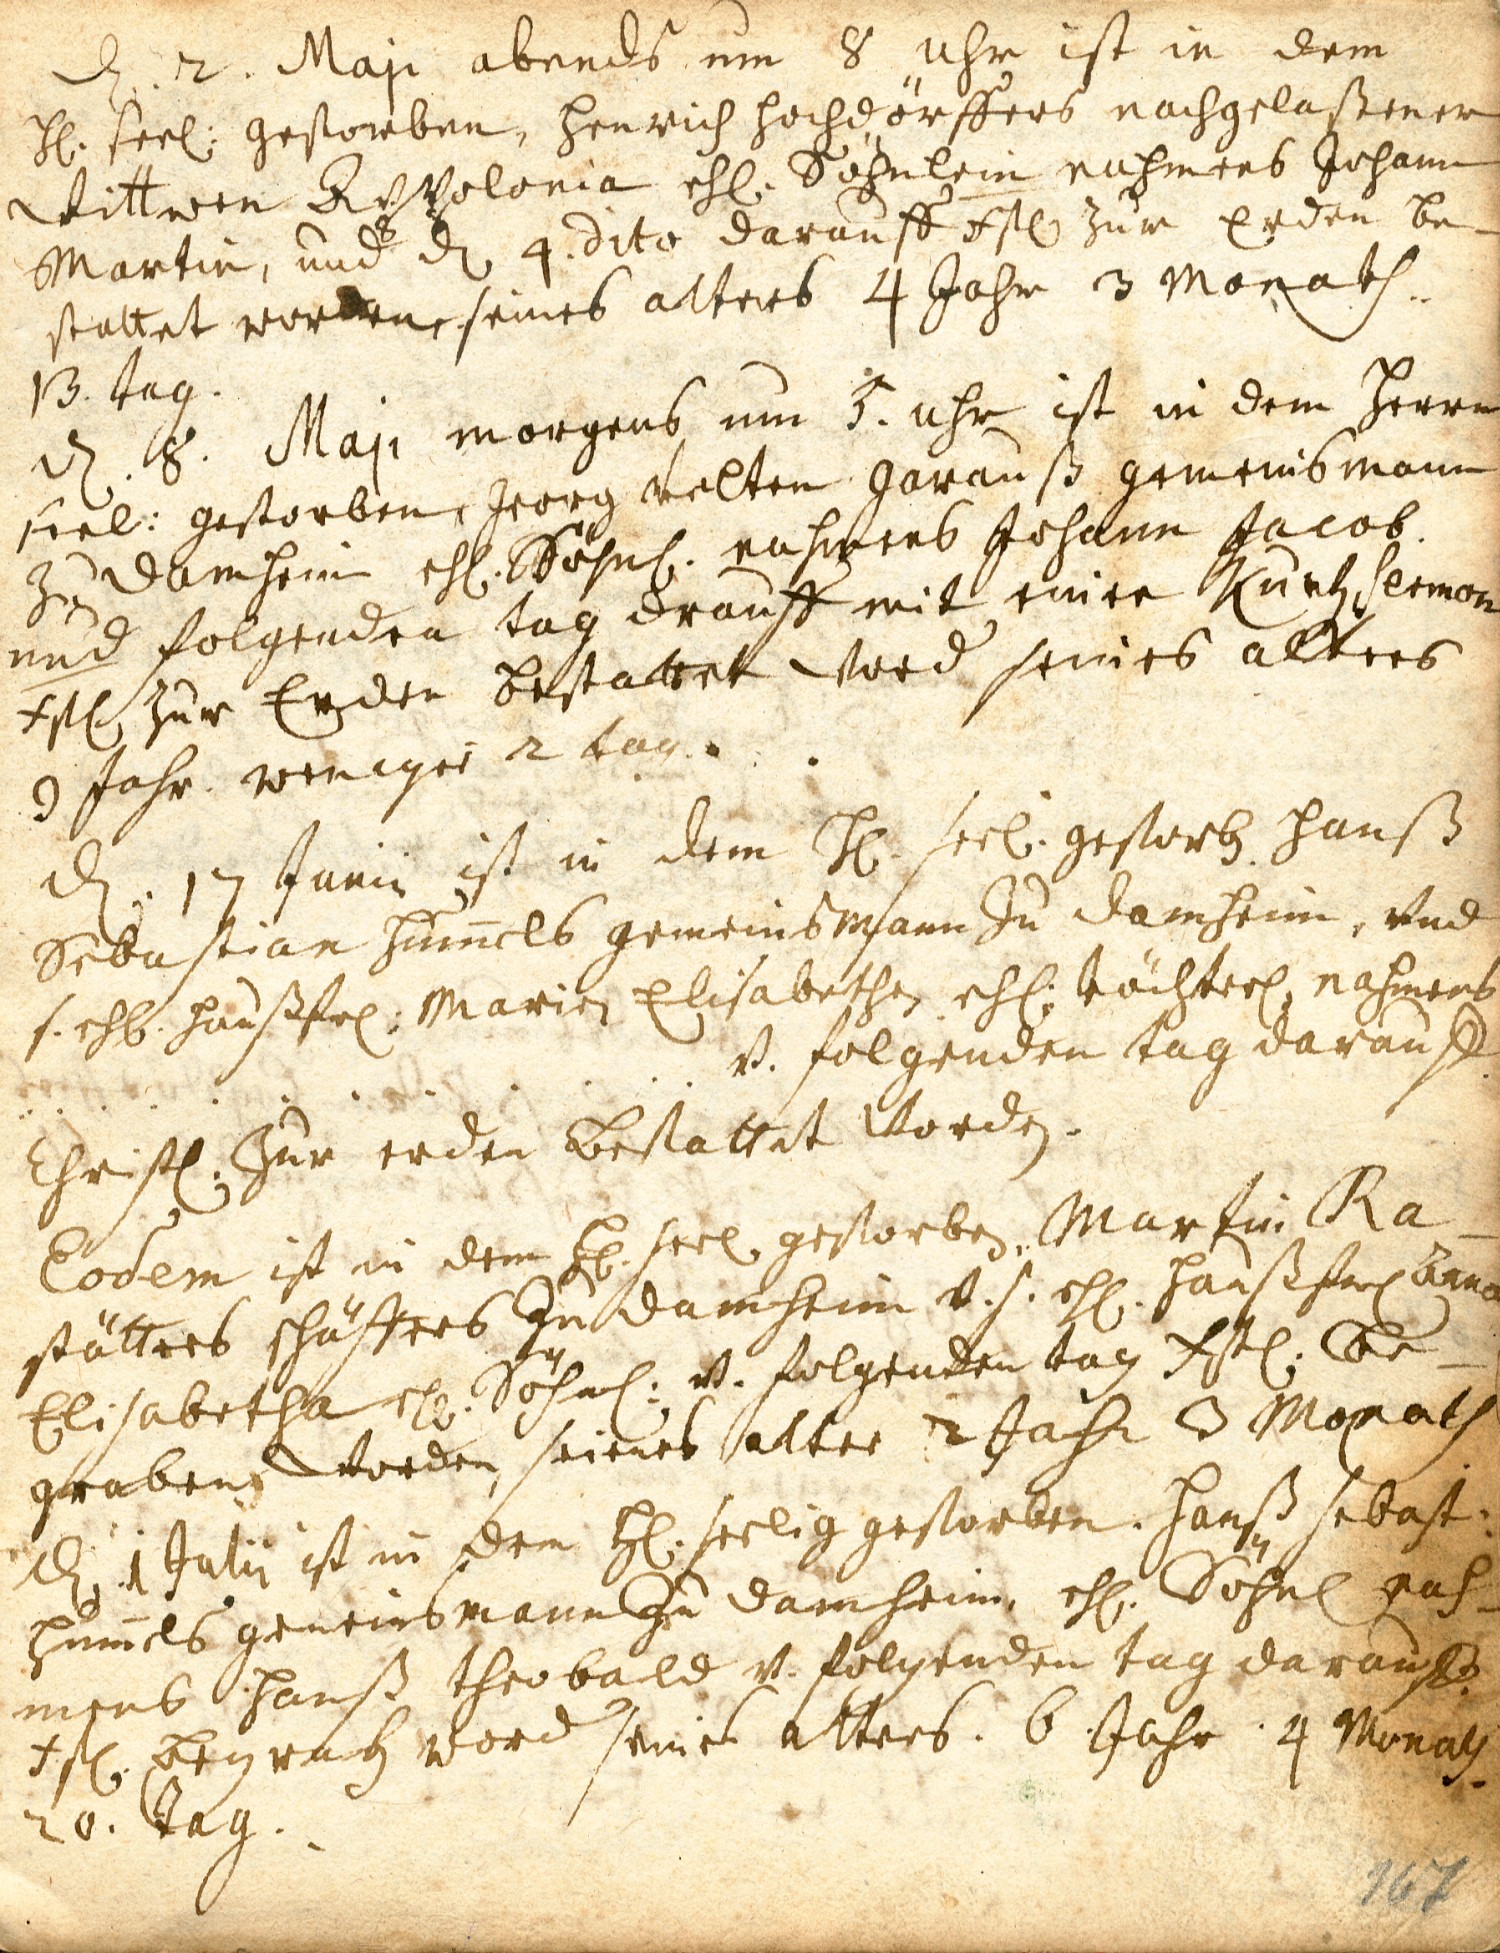 d. 2. Maji abends um 8 Uhr ist in dem
H. seel: gestorben, Henrich Hochdörffers nachgelaßener
Wittwen Appolonia ehl. Söhnlein nahmens Johann
Martin, und d 4. dito darauff xstl zur Erden be-
stattet worden, seines alters 4 Jahr 3 Monath..
13. tag.
d. 8. Maji morgens um 5. Uhr ist in dem Herrn
seel: gestorben, Georg Velten Garauß gemeinsmann
zu Damheim ehl. Söhnl. nahmens Johann Jacob.
und folgenden tag drauff mit einer Kurtz sermon
xstl zur Erden bestattet word seines alters
9 Jahr. weniger 2 tag.
d. 17 Junii ist in dem H. seel. gestorb. Hanß
Sebastian Hum̄els gemeinsmann zu Damheim, und
s. ehl. haußfr: Marien Elisabethen ehl: töchterl. nahmens
. . . . . . . . v. folgenden tag darauff
Christl. zur erden bestattet worden.
Eodem ist in dem H. seel gestorben, Martin Ra-
stätters schäffers zu Damheim v. s. ehl. haußfr Anna
Elisabetha ehl. Söhnl: v. folgenden tag xstl. be-
graben worden, seines alter 2 Jahr 3 Monath
d. 1 Julii ist in dem H. seelig gestorben. Hanß Sebast:
Hum̄els gemeinsmann zu Damheim, ehl. Söhnl nah-
mens Hanß Theobald v. folgenden tag darauff.
xstl. begrab word seines alters. 6 Jahr. 4 Monath.
20. Tag.
167